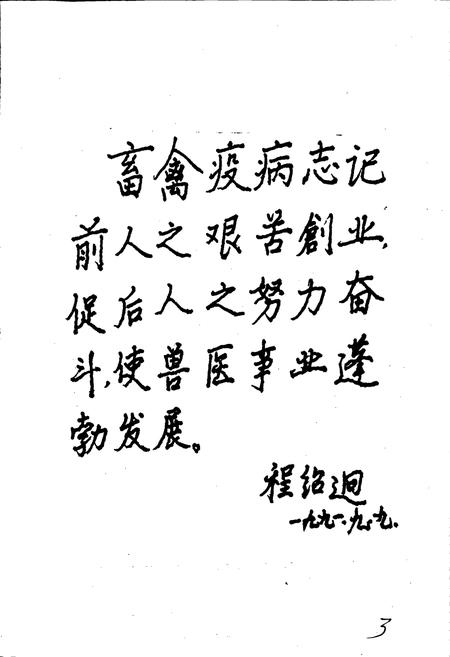 畜禽疫病志记
前人之艰苦創业,
促后人之努力奋
斗,使兽医事业蓬
勃发展。
程绍迥
一九九一.九.九.
3